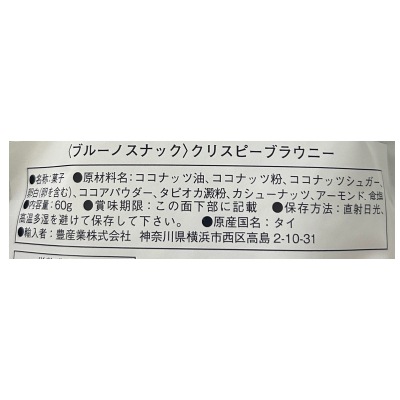 〈ブルーノスナック〉クリスピーブラウニー
●名称：菓子　●原材料名：ココナッツ油、ココナッツ粉、ココナッツシュガー、
卵白（卵を含む）、ココアパウダー、タピオカ澱粉、カシューナッツ、アーモンド、食塩
●内容量：60g　●賞味期限：この面下部に記載　●保存方法：直射日光、
高温多湿を避けて保存して下さい。　●原産国名：タイ
●輸入者：豊産業株式会社　神奈川県横浜市西区高島 2-10-31